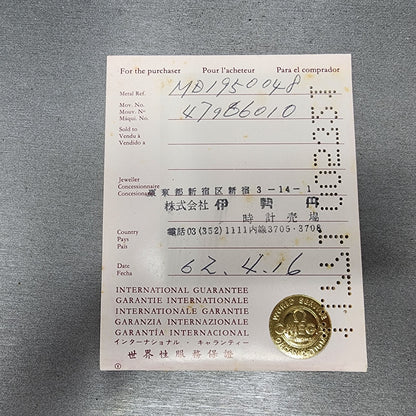 For the purchaser Pour l'acheteur Para el comprador
Metal Ref. MD1950048
Mov. No.
Mouv. Nº 47986010
Máqui. No.
Sold to
Vendu à
Vendido a
Jeweller
Concessionnaire 東京都新宿区新宿3-14-1
Concesionario
株式会社 伊勢丹
時計売場
Country 電話03(352)1111内線3705-3708
Pays
País
Date 62.4.16
Fecha
INTERNATIONAL GUARANTEE
GARANTIE INTERNATIONALE
INTERNATIONALE GARANTIE
GARANZIA INTERNAZIONALE
GARANTÍA INTERNACIONAL
インターナショナル・ギャランティー
世界性服務保證
WORLD SERVICE
Ω
OMEGA
ORGANIZATION